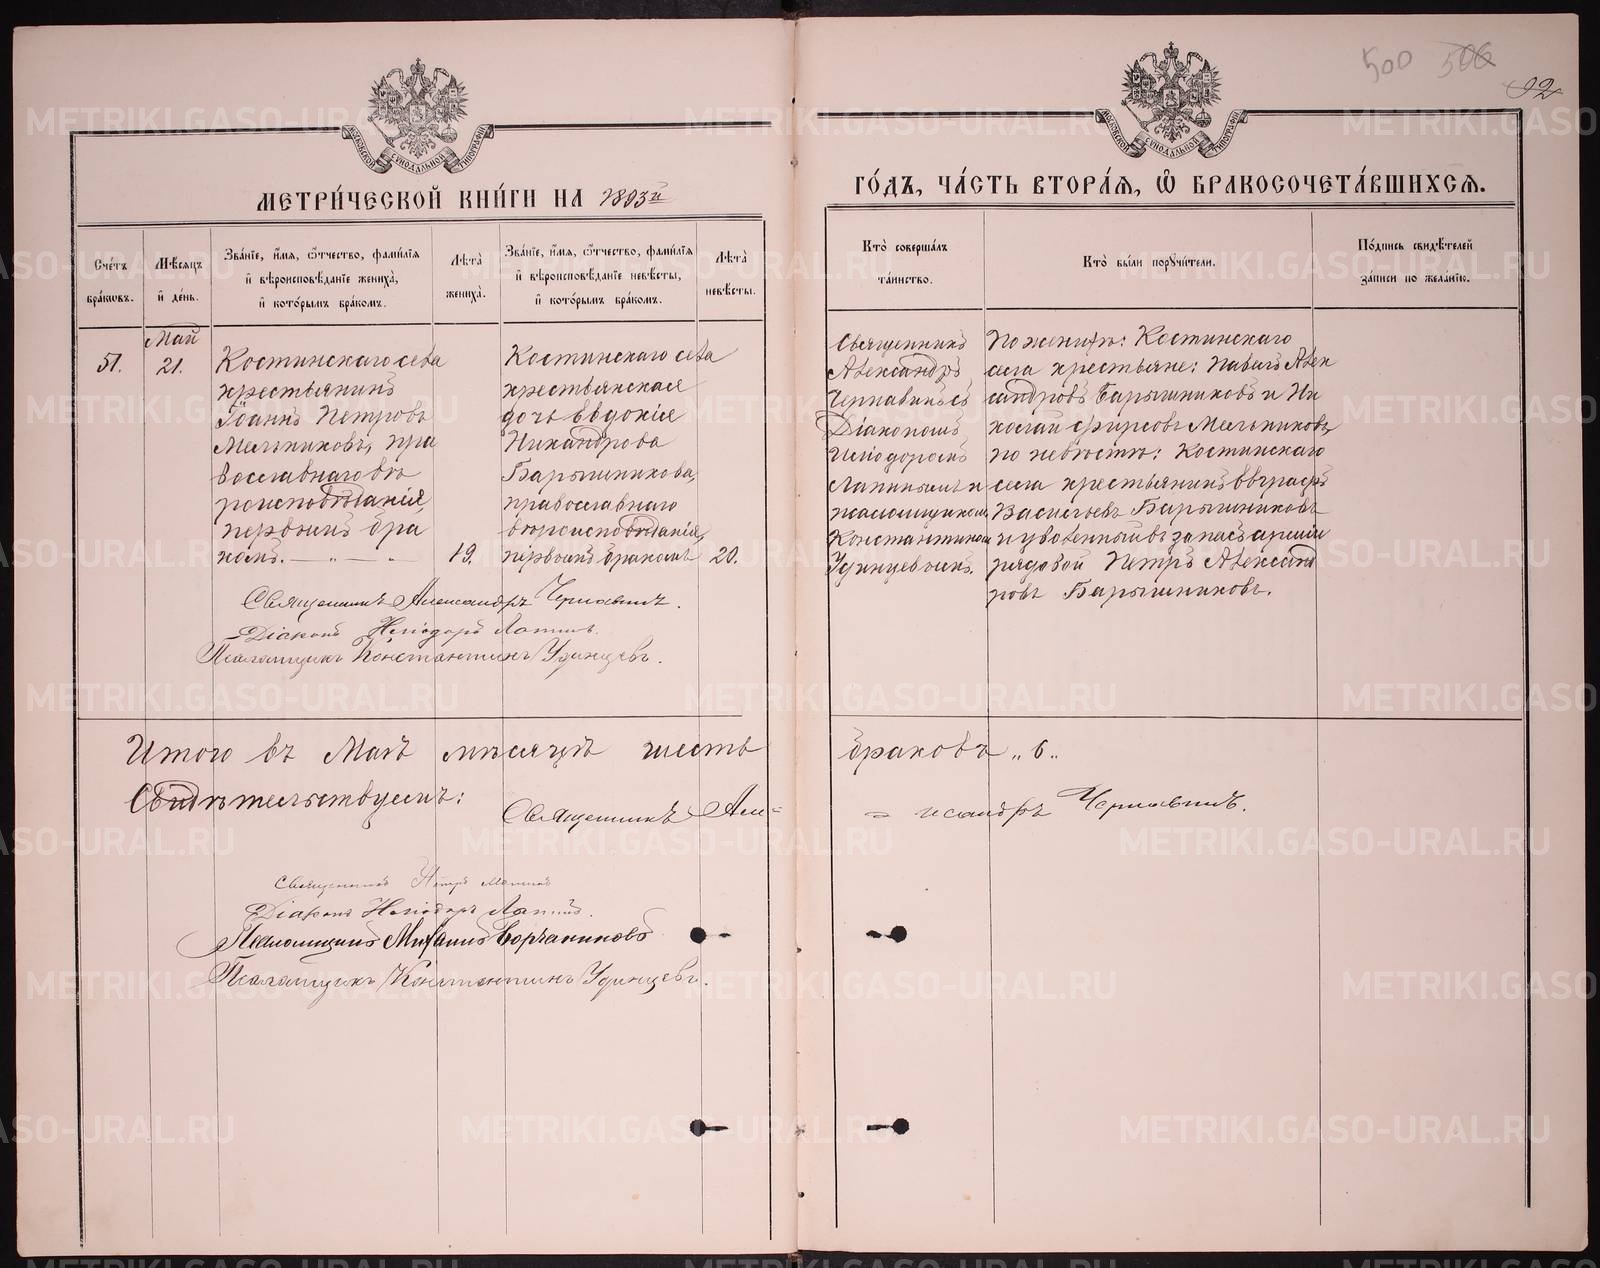 500 506
92
МОСКОВСКОЙ СѴНОДАЛЬНОЙ ТИПОГРАФІИ
МОСКОВСКОЙ СѴНОДАЛЬНОЙ ТИПОГРАФІИ
МЕТРИ́ЧЕСКОЙ КНИ́ГИ НА 1893й
ГО́ДЪ, ЧА́СТЬ ВТОРА́Я, Ѽ БРАКОСОЧЕТА́ВШИХСЯ.
Сче́тъ
бра́ковъ.
Мѣ́сяцъ
и҆ де́нь.
Зва́нїе, и҆́мѧ, ѻ҆́тчество, фами́лїѧ
и҆ вѣроисповѣ́данїе жениха̀,
и҆ кото́рымъ бра́комъ.
Лѣ́та
жениха̀.
Зва́нїе, и҆́мѧ, ѻ҆́тчество, фами́лїѧ
и҆ вѣроисповѣ́данїе невѣ́сты,
и҆ кото́рымъ бра́комъ.
Лѣ́та
невѣ́сты.
Кто̀ соверша́лъ
та́инство.
Кто̀ бы́ли порꙋчи́тели.
По́дпись свидѣ́телей
за́писи по жела́нїю.
51.
Май
21.
Костинскаго села
крестьянинъ
Іоаннъ Петровъ
Мельниковъ, пра
вославнаго вѣ
роисповѣданія,
первымъ бра
комъ. — „ — „
19.
Костинскаго села
крестьянская
дочь Евдокія
Никандрова
Барышникова,
православнаго
вѣроисповѣданія,
первымъ бракомъ
20.
Священникъ
Александръ
Чернавинъ съ
Діакономъ
Исидоромъ
Лапинымъ и
псаломщикомъ
Константиномъ
Удинцевымъ.
По женихѣ: Костинскаго
села крестьяне: Павелъ Алек
сандровъ Барышниковъ и Ни
колай Фирсовъ Мельниковъ,
по невѣстѣ: Костинскаго
села крестьянинъ Евграфъ
Васильевъ Барышниковъ
и уволенный въ запасъ арміи
рядовой Петръ Александ
ровъ Барышниковъ.
Священникъ Александръ Чернавинъ.
Діаконъ Исидоръ Лапинъ.
Псаломщикъ Константинъ Удинцевъ.
Итого въ Маѣ мѣсяцѣ шесть браковъ „6„
Свидѣтельствуемъ:
Священникъ Але=
= ксандръ Чернавинъ.
Священникъ Петръ
Діаконъ Исидоръ Лапинъ.
Псаломщикъ Михаилъ
Псаломщикъ Константинъ Удинцевъ.
METRIKI.GASO-URAL.RU